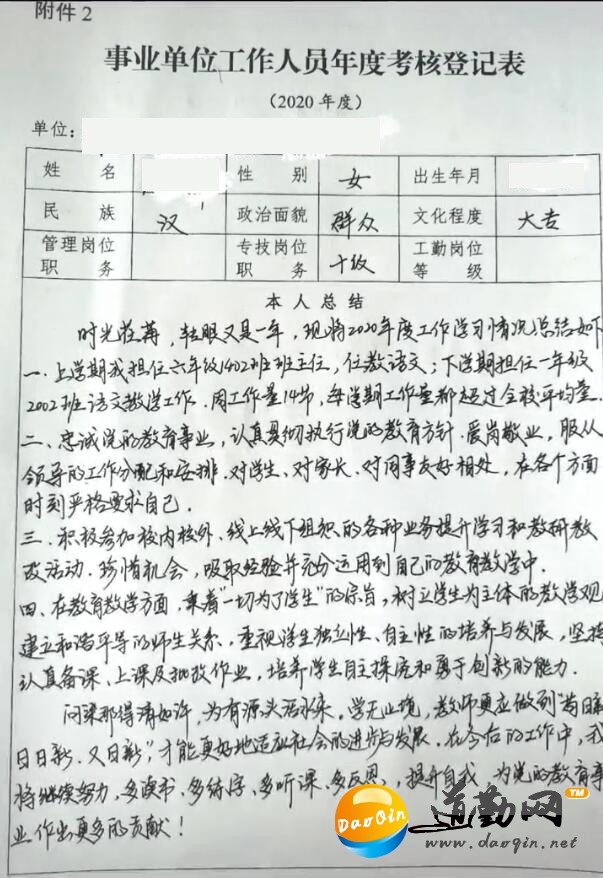 附件2
事业单位工作人员年度考核登记表
（2020 年度）
单位：
姓 名 性 别 女 出生年月
民 族 汉 政治面貌 群众 文化程度 大专
管理岗位职务 专技岗位职务 十级 工勤岗位等级
本人总结
时光荏苒，转眼又是一年，现将2020年度工作学习情况总结如下
一.上学期我担任六年级1402班班主任，任教语文；下学期担任一年级
2002班语文教学工作.周工作量14节，每学期工作量都超过全校平均量.
二、忠诚党的教育事业，认真贯彻执行党的教育方针.爱岗敬业，服从
领导的工作分配和安排.对学生、对家长、对同事友好相处，在各个方面
时刻严格要求自己.
三.积极参加校内校外、线上线下组织的各种业务提升学习和教研教
改活动.珍惜机会，吸取经验并充分运用到自己的教育教学中.
四、在教育教学方面，秉着"一切为了学生"的宗旨，树立学生为主体的教学观
建立和谐平等的师生关系，重视学生独立性、自主性的培养与发展，坚持
认真备课、上课及批改作业，培养学生自主探究和勇于创新的能力.
问渠那得清如许，为有源头活水来，学无止境，教师更应做到"苟日新
日日新.又日新"，才能更好地适应社会的进步与发展.在今后的工作中，我
将继续努力，多读书、多练字、多听课、多反思，提升自我，为党的教育事
业作出更多的贡献！
DaoQin 道勤网 TM
www.daoqin.net